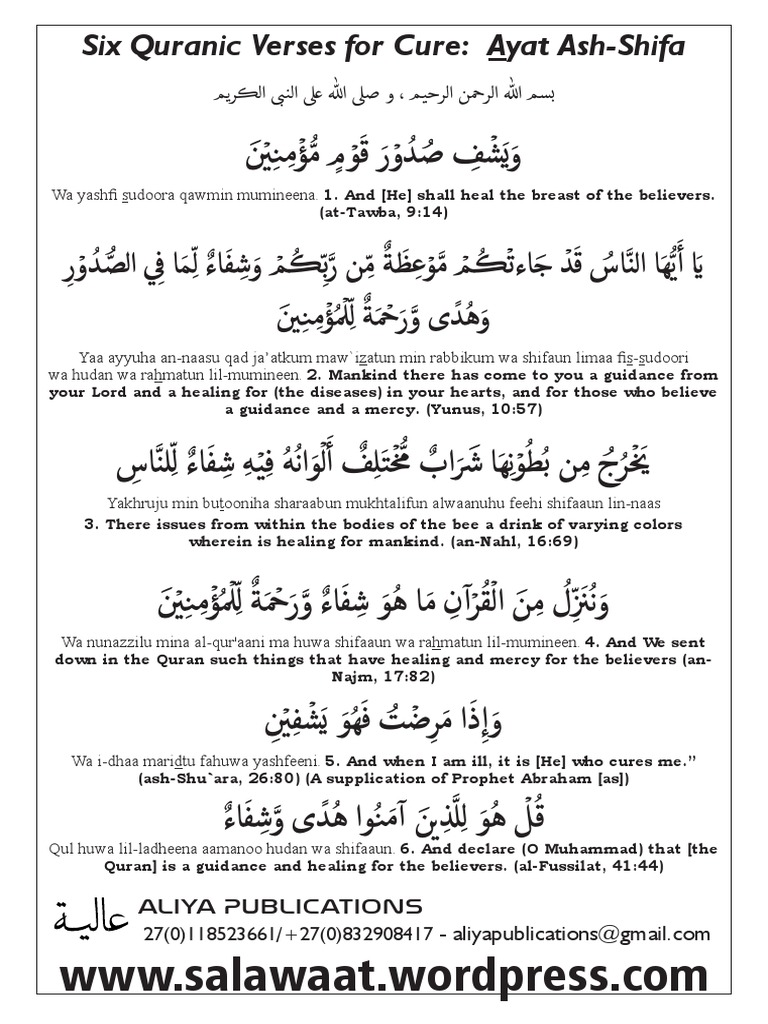 Six Quranic Verses for Cure: Ayat Ash-Shifa
بسم الله الرحمن الرحيم ، و صلى الله على النبى الكريم
وَيَشْفِ صُدُوْرَ قَوْمٍ مُّؤْمِنِيْنَ
Wa yashfi sudoora qawmin mumineena. 1. And [He] shall heal the breast of the believers.
(at-Tawba, 9:14)
يَا أَيُّهَا النَّاسُ قَدْ جَاءتْكُمْ مَّوْعِظَةٌ مِّن رَّبِّكُمْ وَشِفَاءٌ لِّمَا فِي الصُّدُوْرِ
وَهُدًى وَّرَحْمَةٌ لِّلْمُؤْمِنِينَ
Yaa ayyuha an-naasu qad ja’atkum maw`izatun min rabbikum wa shifaun limaa fis-sudoori
wa hudan wa rahmatun lil-mumineen. 2. Mankind there has come to you a guidance from
your Lord and a healing for (the diseases) in your hearts, and for those who believe
a guidance and a mercy. (Yunus, 10:57)
يَخْرُجُ مِن بُطُوْنِهَا شَرَابٌ مُّخْتَلِفٌ أَلْوَانُهُ فِيْهِ شِفَاءٌ لِّلنَّاسِ
Yakhruju min butooniha sharaabun mukhtalifun alwaanuhu feehi shifaaun lin-naas
3. There issues from within the bodies of the bee a drink of varying colors
wherein is healing for mankind. (an-Nahl, 16:69)
وَنُنَزِّلُ مِنَ الْقُرْآنِ مَا هُوَ شِفَاءٌ وَّرَحْمَةٌ لِّلْمُؤْمِنِيْنَ
Wa nunazzilu mina al-qur'aani ma huwa shifaaun wa rahmatun lil-mumineen. 4. And We sent
down in the Quran such things that have healing and mercy for the believers (an-
Najm, 17:82)
وَإِذَا مَرِضْتُ فَهُوَ يَشْفِيْنِ
Wa i-dhaa maridtu fahuwa yashfeeni. 5. And when I am ill, it is [He] who cures me.”
(ash-Shu`ara, 26:80) (A supplication of Prophet Abraham [as])
قُلْ هُوَ لِلَّذِينَ آمَنُوا هُدًى وَّشِفَاءٌ
Qul huwa lil-ladheena aamanoo hudan wa shifaaun. 6. And declare (O Muhammad) that [the
Quran] is a guidance and healing for the believers. (al-Fussilat, 41:44)
عالية ALIYA PUBLICATIONS
27(0)118523661/+27(0)832908417 - aliyapublications@gmail.com
www.salawaat.wordpress.com